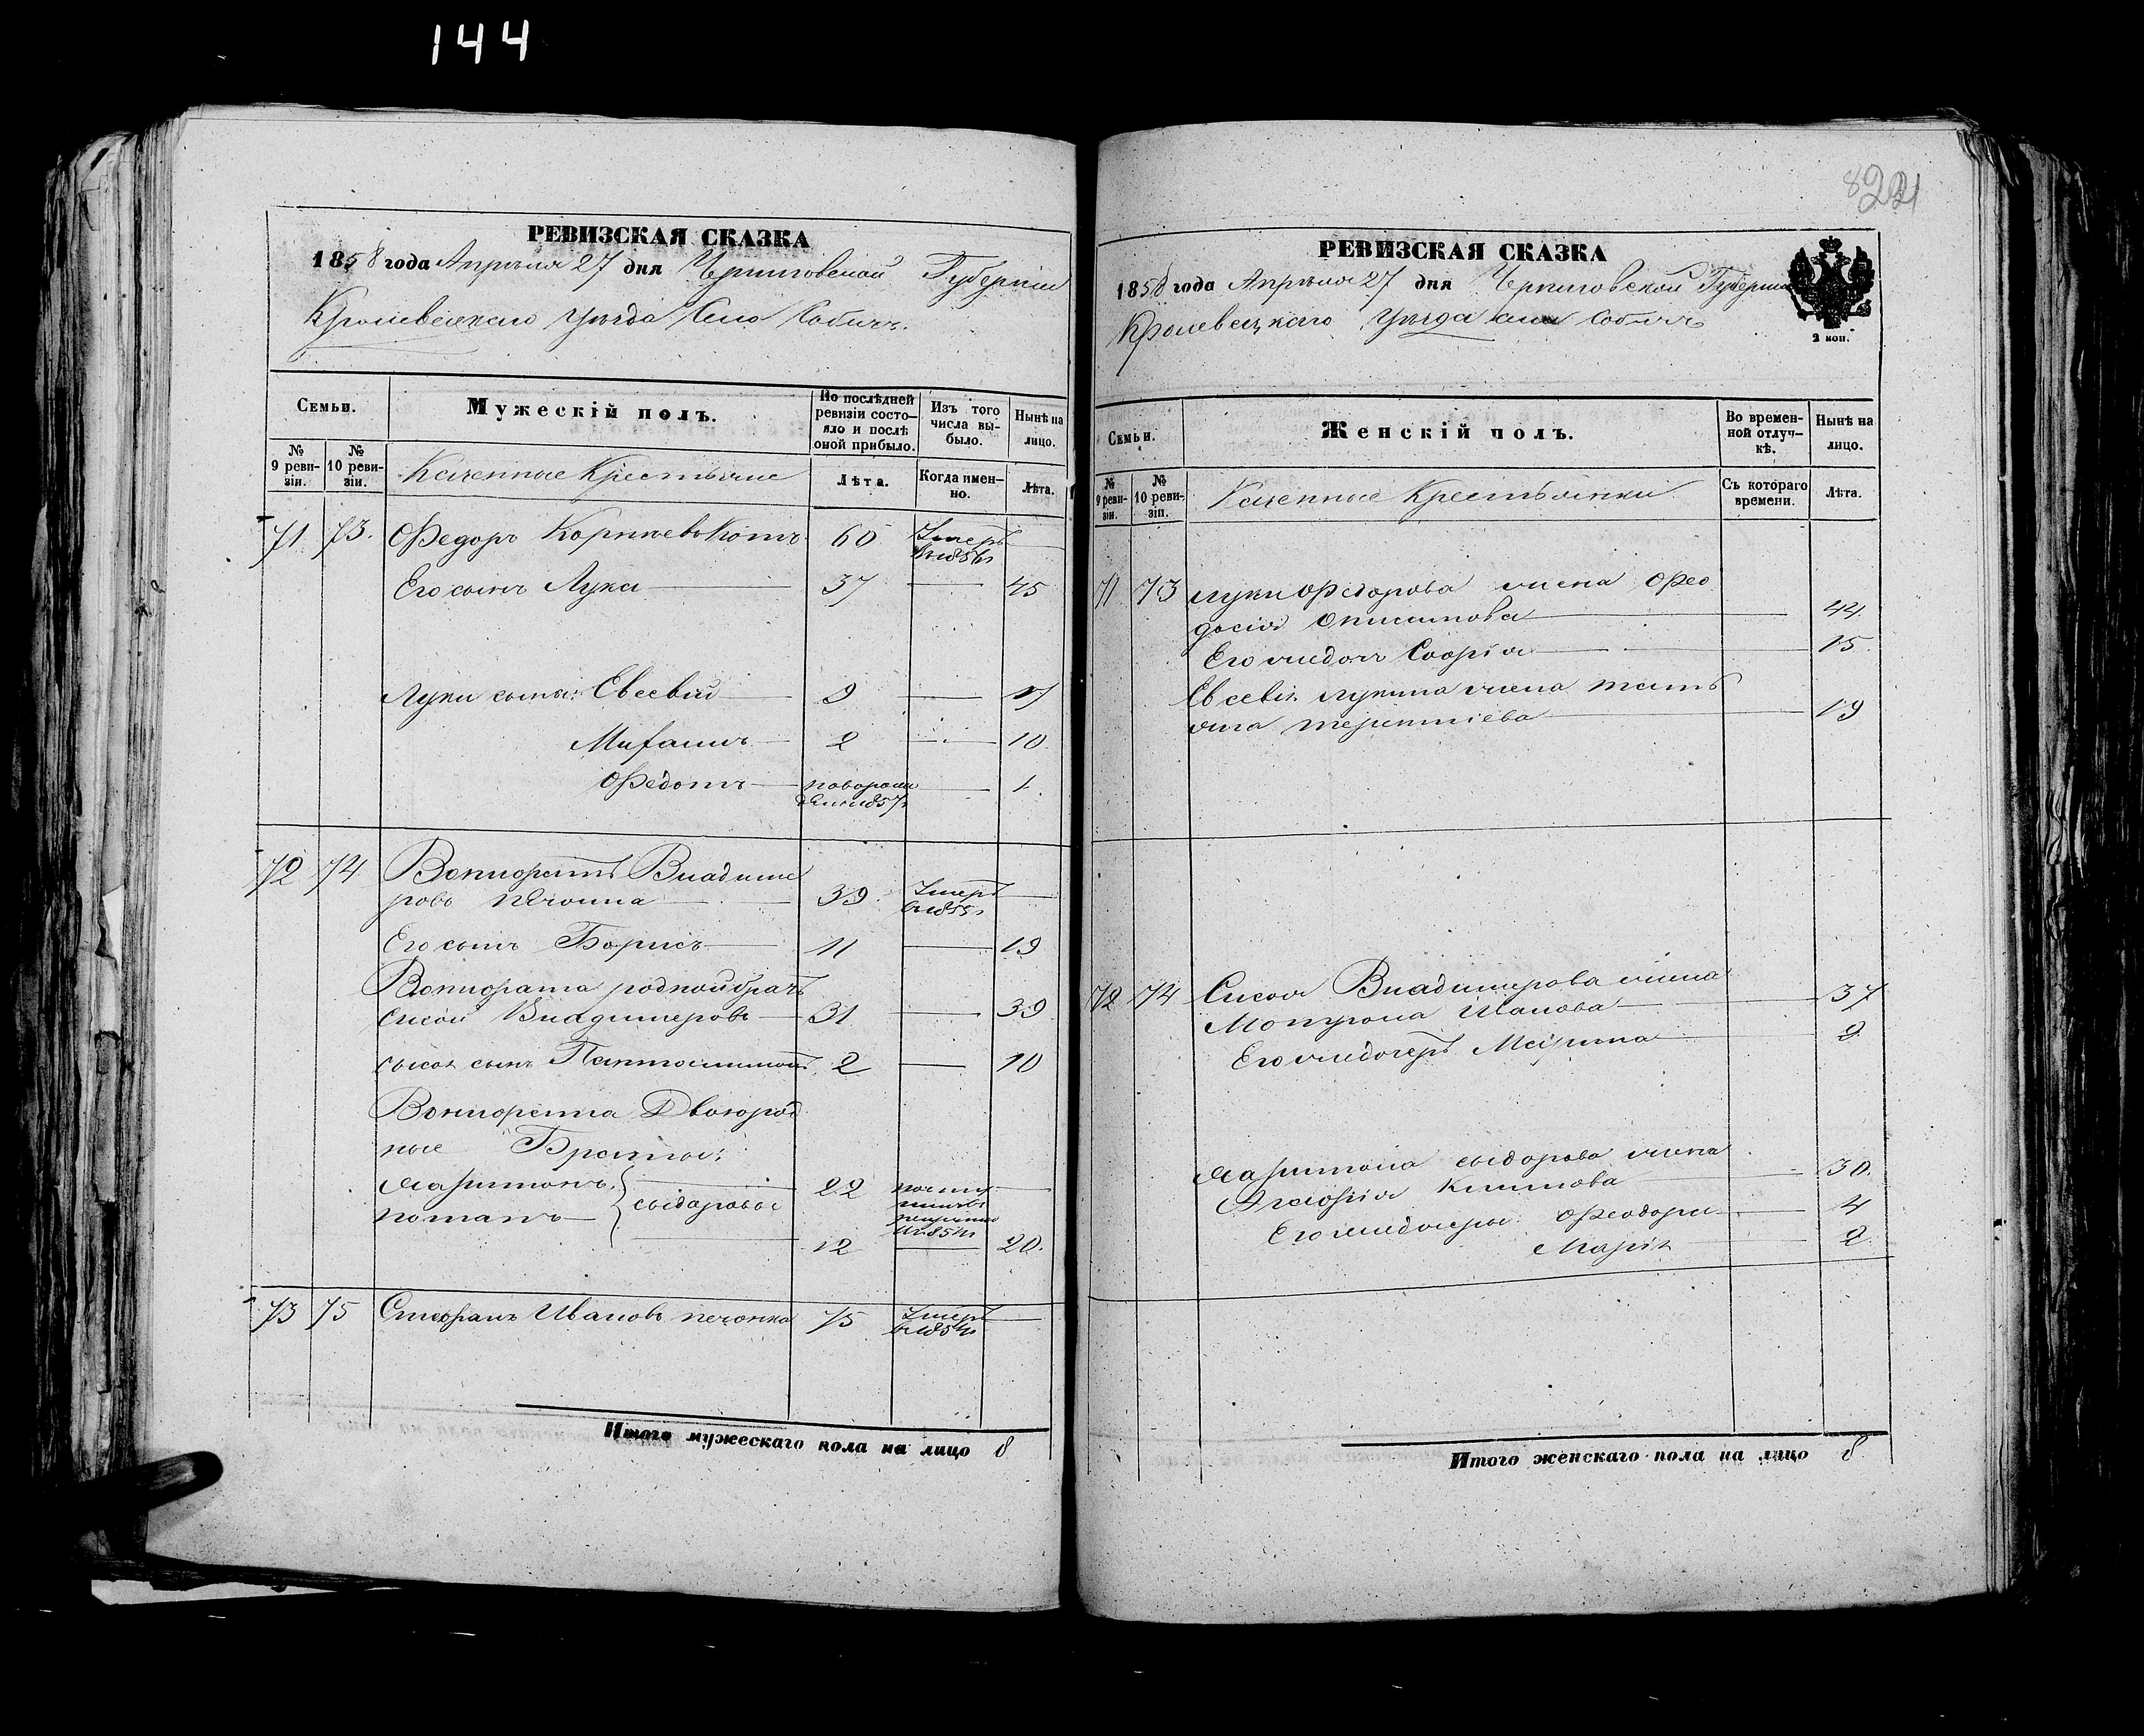 144
8221
РЕВИЗСКАЯ СКАЗКА
1858 года Апреля 27 дня Черниговской Губернии
Кролевецкаго Уѣзда Село Собичъ.
Семьи.
Мужескій полъ.
По послѣдней ревизіи состояло и послѣ оной прибыло.
Изъ того числа выбыло.
Нынѣ на лицо.
№ 9 ревизіи.
№ 10 ревизіи.
Казенные Крестьяне
Лѣта.
Когда именно.
Лѣта.
71 73. Федоръ Корнѣевъ Котъ 60 Умеръ
въ 1856г
Его сынъ Лука 37 45
Луки сыны: Евсевий 9 17
Михаилъ 2 10
Федотъ новорожд 1.
1857г
72 74 Вонифатъ Владиме
ровъ Печонка 39. Умеръ
въ 1855г
Его сынъ Борисъ 11 19
Вонифата родной братъ
Сисой Владимеровъ 31 39
сысоя сынъ Пантелимонъ 2 10
Вонифата Двоюрод
ные Братья:
Харитонъ 22
Сыдоровы
потапъ 12 20.
1854г
73 75 Стефанъ Ивановъ печонка 75 Умеръ
въ 1854г
Итого мужескаго пола на лицо 8
РЕВИЗСКАЯ СКАЗКА
1858 года Апреля 27 дня Черниговской Губернии
Кролевецкаго Уѣзда села Собичъ
2 коп.
Семьи.
Женскій полъ.
Во временной отлучкѣ.
Нынѣ на лицо.
№ 9 ревизіи.
№ 10 ревизіи.
Казенные Крестьянки
Съ котораго времени.
Лѣта.
71 73 Луки Федорова жена Фео
досія Онисимова 44
Его жедочь Софія 15.
Евсевія лукина жена Тать
яна терентіева 19
72 74 Сисоя Владимерова жена
Мотрона Иванова 37
Его жедочерь Марина 2
Харитона сыдорова жена
Агафія Климова 30.
Его жедочеры Феодора 4
Марія 2
Итого женскаго пола на лицо 8